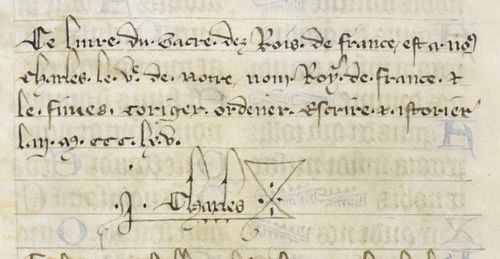 Ce livre du sacre dez Rois de france est a no9
Charles le Ve de notre nom Roy de france et
le fimes coriger ordener escrire et istorier
l'an m. ccc. lx v.
Charles